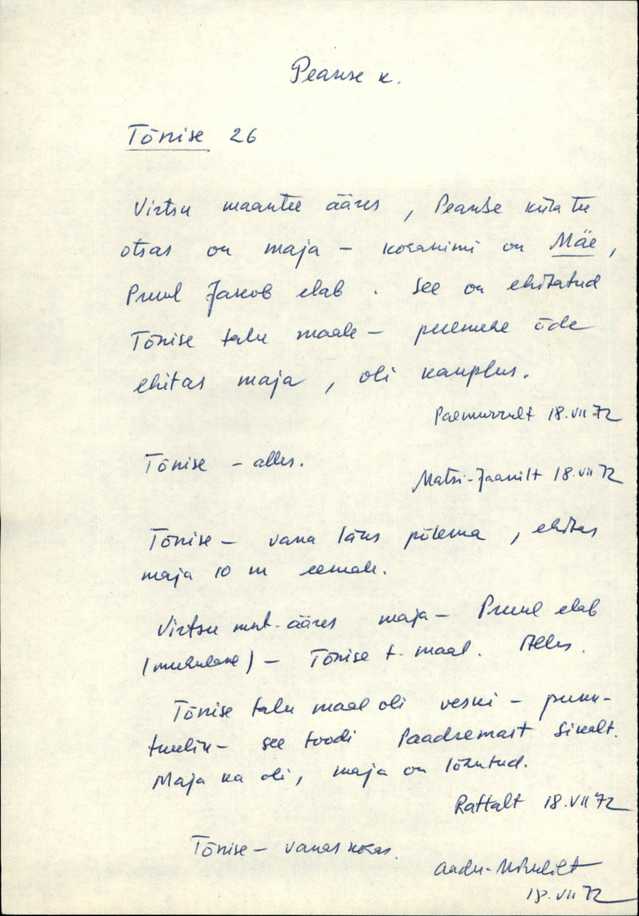 Peanse k.
Tõnise 26
Virtsu maantee ääres, Peanse küla tee
otsas on maja – kosanimi on Mäe,
Pruul Jakob elab. See on ehitatud
Tõnise talu maale – peremehe õde
ehitas maja, oli kauplus.
Paemurrult 18.VII 72
Tõnise – alles.
Matsi-Jaanilt 18.VII 72
Tõnise – vana läks põlema, ehitas
maja 10 m eemale.
Virtsu mnt. ääres maja – Pruul elab
(muhulane) – Tõnise t. maal. Alles.
Tõnise talu maal oli veski – puu-
tuulik – see toodi Paadremaist siialt.
Maja ka oli, maja on lõhutud.
Rattalt 18.VII 72
Tõnise – vanas kohas.
Aadu-Mihklilt
18.VII 72